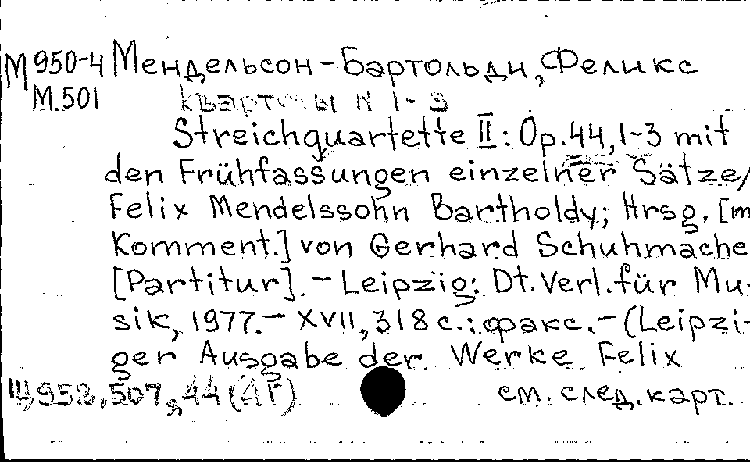 М950-4 Мендельсон-Бартольди, Феликс
М.501 Квартеты N 1-3
Streichquartette II: Op.44,1-3 mit
den Frühfassungen einzelner Sätze/
Felix Mendelssohn Bartholdy; Hrsg. [m
Komment.] von Gerhard Schuhmache
[Partitur]. - Leipzig: Dt. Verl. für Mu-
sik, 1977. - XVII, 318 с.: факс. - (Leipzi-
ger Ausgabe der Werke Felix
см. след. карт.